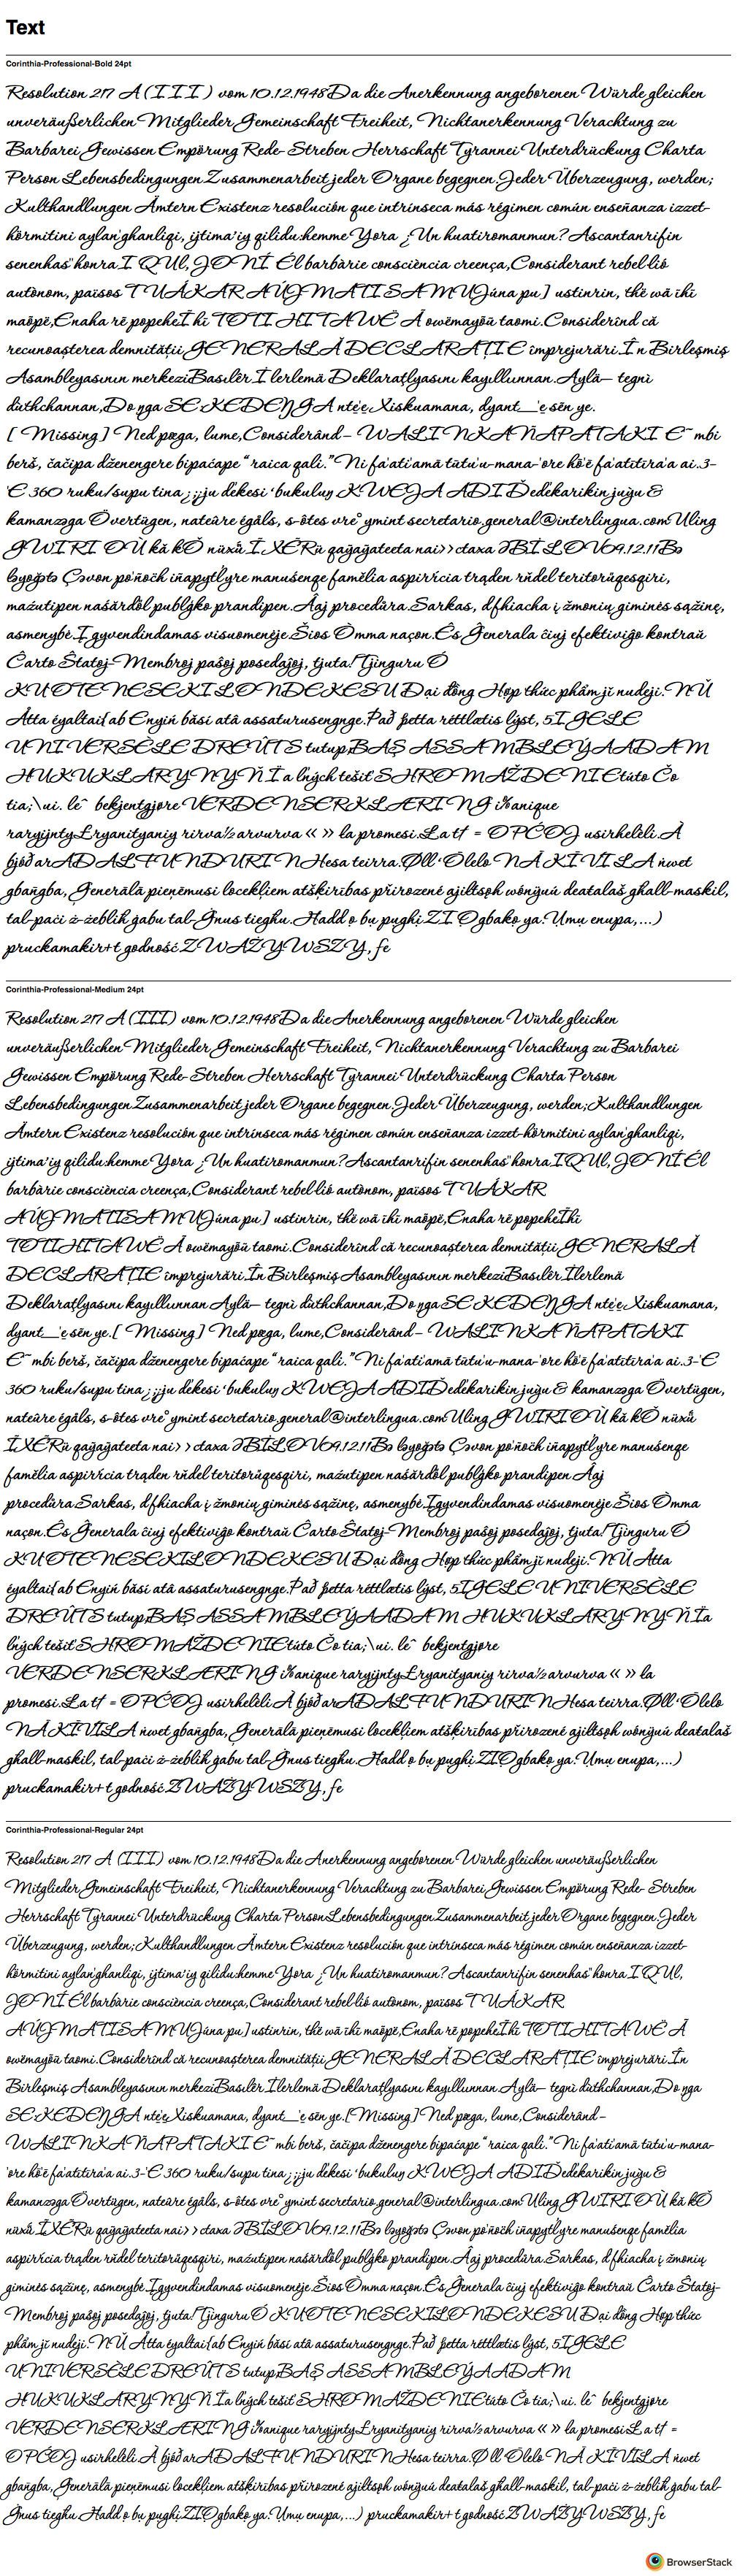 Text
Corinthia-Professional-Bold 24pt
Resolution 217 A (I I I ) vom 10.12.1948Da die Anerkennung angeborenen Würde gleichen
unveräußerlichen Mitglieder Gemeinschaft Freiheit, Nichtanerkennung Verachtung zu
Barbarei Gewissen Empörung Rede- Streben Herrschaft Tyrannei Unterdrückung Charta
Person Lebensbedingungen Zusammenarbeit jeder Organe begegnen.Jeder Überzeugung, werden;
Kulthandlungen Ämtern Existenz resolución que intrínseca más régimen común enseñanza izzet-
hörmitini aylan'ghanliqi, ijtima'iy qilidu:hemme Yora ¿Un huatiromanmun? Ascantanrifin
senenhas"honra.I QUI, JONÍ Él barbàrie consciència creença,Considerant rebel·lió
autònom, països T UÁKAR AÚJMATISAMUJúna pu] ustinrin, thë wā ïhï
maöpë,Enaha rë popeheÏhï TOTIHITAWË Ä owëmayöü taomi.Considerînd că
recunoașterea demnității GENERALĂ DECLARAȚIE împrejurări.În Birleşmiş
Asambleyasının merkeziBasılêr İlerlemä Deklaraţlyasını kayıllıınnan.Aylä— tegnì
dùthchannan,Do ŋga SE:KEDEŊGA ntẹ'ẹ Xiskuamana, dyant__'ẹ sẽn ye.
[ Missing] Ned pœga, lume,Considerând- WALINKAÑAPATAKI E~mbi
berš, čačipa dženengere bipaćape “raica qalì.”Ni fa'ati'amā tūtu'u-mana-'ore hō'ē fa'atītīra'a ai.3-
'E 360 ruku/supu tina ¿;¡ju ďekesi ‘bukuluŋ KWEJA ADIĎeďekarikin juŋu &
kamanzəga Övertügen, nateûre égâls, s-ôtes vre°ymint secretario.general@interlingua.comUling
GWIRIOÙ kǎ kǑ nüxǘ ǏXẼRü qaÿaÿateeta nai>>ctaxa ƏBİLOV09.12.11Bə
ləyoğətə Çəvon po'ñoch iñapyt'l'yre manuśenqe famělia aspirrícia trąden rǔdel teritorůqesqiri,
maźutipen naśǎrdǒl publǵko prandipen.Âaj procedůra.Sarkas, dfhiacha į žmonių giminės sąžinę,
asmenybė.Įgyvendindamas visuomenėje.Šios Òmma naçon.Ês Ĝenerala ĉiuj efektiviĝo kontraŭ
Ĉarto Ŝtatoj-Membroj paŝoj posedaĵoj, tjuta!Tjinguru Ó
KUOTENESEKILONDEKESU Dại đồng Hợp thức phẩm jĭ nudeji.NŬ
Åtta éyaltai{ab Enyiń băsí atâ assaturusengnge.Það þetta réttlætis lýst, 5IGELE
UNIVERSÈLE DREÛTS tutup;BAŞ ASSAMBLEÝAADAM
HUKUKLARYNYŇ Ïa ľných tešiť SHROMAŽDENIEtúto Čo
tia;\ui. le^ bekjentgjøre VERDENSERKLÆRING i%anique
raryijnty.Lryanityaniy rirva½arvurva « » la promesi.La t† = OPĆOJ usirhelèli.À
þjóð arADALFUNDURINHesa teirra.Øll ʻŌlelo NĀ KĪVĪLA ṅwet
gban̄gba, Ģenerālā pieņēmusi locekļiem atšķirības přirozené ajiłtsǫh wónÿuú deaťalaš għall-maskil,
tal-paċi ż-żeblih ġabu tal-Ġnus tiegħu.Ħadd ọ bụ pughị.ZỊ Ọgbakọ ya?Ụmụ enupa,...)
pruckamakir+t godność.ZWAŻYWSZY, fe
Corinthia-Professional-Medium 24pt
Resolution 217 A (III) vom 10.12.1948Da die Anerkennung angeborenen Würde gleichen
unveräußerlichen Mitglieder Gemeinschaft Freiheit, Nichtanerkennung Verachtung zu Barbarei
Gewissen Empörung Rede- Streben Herrschaft Tyrannei Unterdrückung Charta Person
Lebensbedingungen Zusammenarbeit jeder Organe begegnen.Jeder Überzeugung, werden;Kulthandlungen
Ämtern Existenz resolución que intrínseca más régimen común enseñanza izzet-hörmitini aylan'ghanliqi,
ijtima'iy qilidu:hemme Yora ¿Un huatiromanmun?Ascantanrifin senenhas"honra.IQUI, JONÍÉl
barbàrie consciència creença,Considerant rebel·lió autònom, països T UÁKAR
AÚJMATISAMUJúna pu] ustinrin, thë wā ïhï maöpë,Enaha rë popeheÏhï
TOTIHITAWË Ä owëmayöü taomi.Considerînd că recunoașterea demnității GENERALĂ
DECLARAȚIE împrejurări.În Birleşmiş Asambleyasının merkeziBasılêr İlerlemä
Deklaraţlyasını kayıllıınnan.Aylä— tegnì dùthchannan,Do ŋga SE:KEDEŊGA ntẹ'ẹ Xiskuamana,
dyant__'ẹ sẽn ye.[ Missing] Ned pœga, lume,Considerând- WALINKAÑAPATAKI
E~mbi berš, čačipa dženengere bipaćape “raica qalì.”Ni fa'ati'amā tūtu'u-mana-'ore hō'ē fa'atītīra'a ai.3-'E
360 ruku/supu tina ¿;¡ju ďekesi ‘bukuluŋ KWEJA ADIĎeďekarikin juŋu & kamanzəga Övertügen,
nateûre égâls, s-ôtes vre°ymint secretario.general@interlingua.comUling GWIRIOÙ kǎ kǑ nüxǘ
ǏXẼRü qaÿaÿateeta nai>>ctaxa ƏBİLOV09.12.11Bə ləyoğətə Çəvon po'ñoch iñapyt'l'yre manuśenqe
famělia aspirrícia trąden rǔdel teritorůqesqiri, maźutipen naśǎrdǒl publǵko prandipen.Âaj
procedůra.Sarkas, dfhiacha į žmonių giminės sąžinę, asmenybė.Įgyvendindamas visuomenėje.Šios Òmma
naçon.Ês Ĝenerala ĉiuj efektiviĝo kontraŭ Ĉarto Ŝtatoj-Membroj paŝoj posedaĵoj, tjuta!Tjinguru Ó
KUOTENESEKILONDEKESU Dại đồng Hợp thức phẩm jĭ nudeji.NŬ Åtta
éyaltai{ab Enyiń băsí atâ assaturusengnge.Það þetta réttlætis lýst, 5IGELE UNIVERSÈLE
DREÛTS tutup;BAŞ ASSAMBLEÝAADAM HUKUKLARYNYŇ Ïa
ľných tešiť SHROMAŽDENIEtúto Čo tia;\ui. le^ bekjentgjøre
VERDENSERKLÆRING i%anique raryijnty.Lryanityaniy rirva½arvurva « » la
promesi.La t† = OPĆOJ usirhelèli.À þjóð arADALFUNDURINHesa teirra.Øll ʻŌlelo
NĀ KĪVĪLA ṅwet gban̄gba, Ģenerālā pieņēmusi locekļiem atšķirības přirozené ajiłtsǫh wónÿuú deaťalaš
għall-maskil, tal-paċi ż-żeblih ġabu tal-Ġnus tiegħu.Ħadd ọ bụ pughị.ZỊỌgbakọ ya?Ụmụ enupa,...)
pruckamakir+t godność.ZWAŻYWSZY, fe
Corinthia-Professional-Regular 24pt
Resolution 217 A (III) vom 10.12.1948Da die Anerkennung angeborenen Würde gleichen unveräußerlichen
Mitglieder Gemeinschaft Freiheit, Nichtanerkennung Verachtung zu Barbarei Gewissen Empörung Rede- Streben
Herrschaft Tyrannei Unterdrückung Charta PersonLebensbedingungen Zusammenarbeit jeder Organe begegnen.Jeder
Überzeugung, werden;Kulthandlungen Ämtern Existenz resolución que intrínseca más régimen común enseñanza izzet-
hörmitini aylan'ghanliqi, ijtima'iy qilidu:hemme Yora ¿Un huatiromanmun? Ascantanrifin senenhas"honra.I QUI,
JONÍ Él barbàrie consciència creença,Considerant rebel·lió autònom, països T UÁKAR
AÚJMATISAMUJúna pu] ustinrin, thë wā ïhï maöpë,Enaha rë popeheÏhï TOTIHITAWË Ä
owëmayöü taomi.Considerînd că recunoașterea demnității GENERALĂ DECLARAȚIE împrejurări.În
Birleşmiş Asambleyasının merkeziBasılêr İlerlemä Deklaraţlyasını kayıllıınnan.Aylä— tegnì dùthchannan,Do ŋga
SE:KEDEŊGA ntẹ'ẹ Xiskuamana, dyant__'ẹ sẽn ye.[ Missing] Ned pœga, lume,Considerând-
WALINKAÑAPATAKI E~mbi berš, čačipa dženengere bipaćape “raica qalì.”Ni fa'ati'amā tūtu'u-mana-
'ore hō'ē fa'atītīra'a ai.3-'E 360 ruku/supu tina ¿;¡ju ďekesi ‘bukuluŋ KWEJA ADIĎeďekarikin juŋu &
kamanzəga Övertügen, nateûre égâls, s-ôtes vre°ymint secretario.general@interlingua.comUling GWIRIOÙ kǎ kǑ
nüxǘ ǏXẼRü qaÿaÿateeta nai>>ctaxa ƏBİLOV09.12.11Bə ləyoğətə Çəvon po'ñoch iñapyt'l'yre manuśenqe famělia
aspirrícia trąden rǔdel teritorůqesqiri, maźutipen naśǎrdǒl publǵko prandipen.Âaj procedůra.Sarkas, dfhiacha į žmonių
giminės sąžinę, asmenybė.Įgyvendindamas visuomenėje.Šios Òmma naçon.Ês Ĝenerala ĉiuj efektiviĝo kontraŭ Ĉarto Ŝtatoj-
Membroj paŝoj posedaĵoj, tjuta!Tjinguru Ó KUOTENESEKILONDEKESU Dại đồng Hợp thức
phẩm jĭ nudeji.NŬ Åtta éyaltai{ab Enyiń băsí atâ assaturusengnge.Það þetta réttlætis lýst, 5IGELE
UNIVERSÈLE DREÛTS tutup;BAŞ ASSAMBLEÝAADAM
HUKUKLARYNYŇ Ïa ľných tešiť SHROMAŽDENIEtúto Čo tia;\ui. le^ bekjentgjøre
VERDENSERKLÆRING i%anique raryijnty.Lryanityaniy rirva½arvurva « » la promesi.La t† =
OPĆOJ usirhelèli.À þjóð arADALFUNDURINHesa teirra.Øll ʻŌlelo NĀ KĪVĪLA ṅwet
gban̄gba, Ģenerālā pieņēmusi locekļiem atšķirības přirozené ajiłtsǫh wónÿuú deaťalaš għall-maskil, tal-paċi ż-żeblih ġabu tal-
Ġnus tiegħu.Ħadd ọ bụ pughị.ZỊỌgbakọ ya?Ụmụ enupa,...) pruckamakir+t godność.ZWAŻYWSZY, fe
BrowserStack